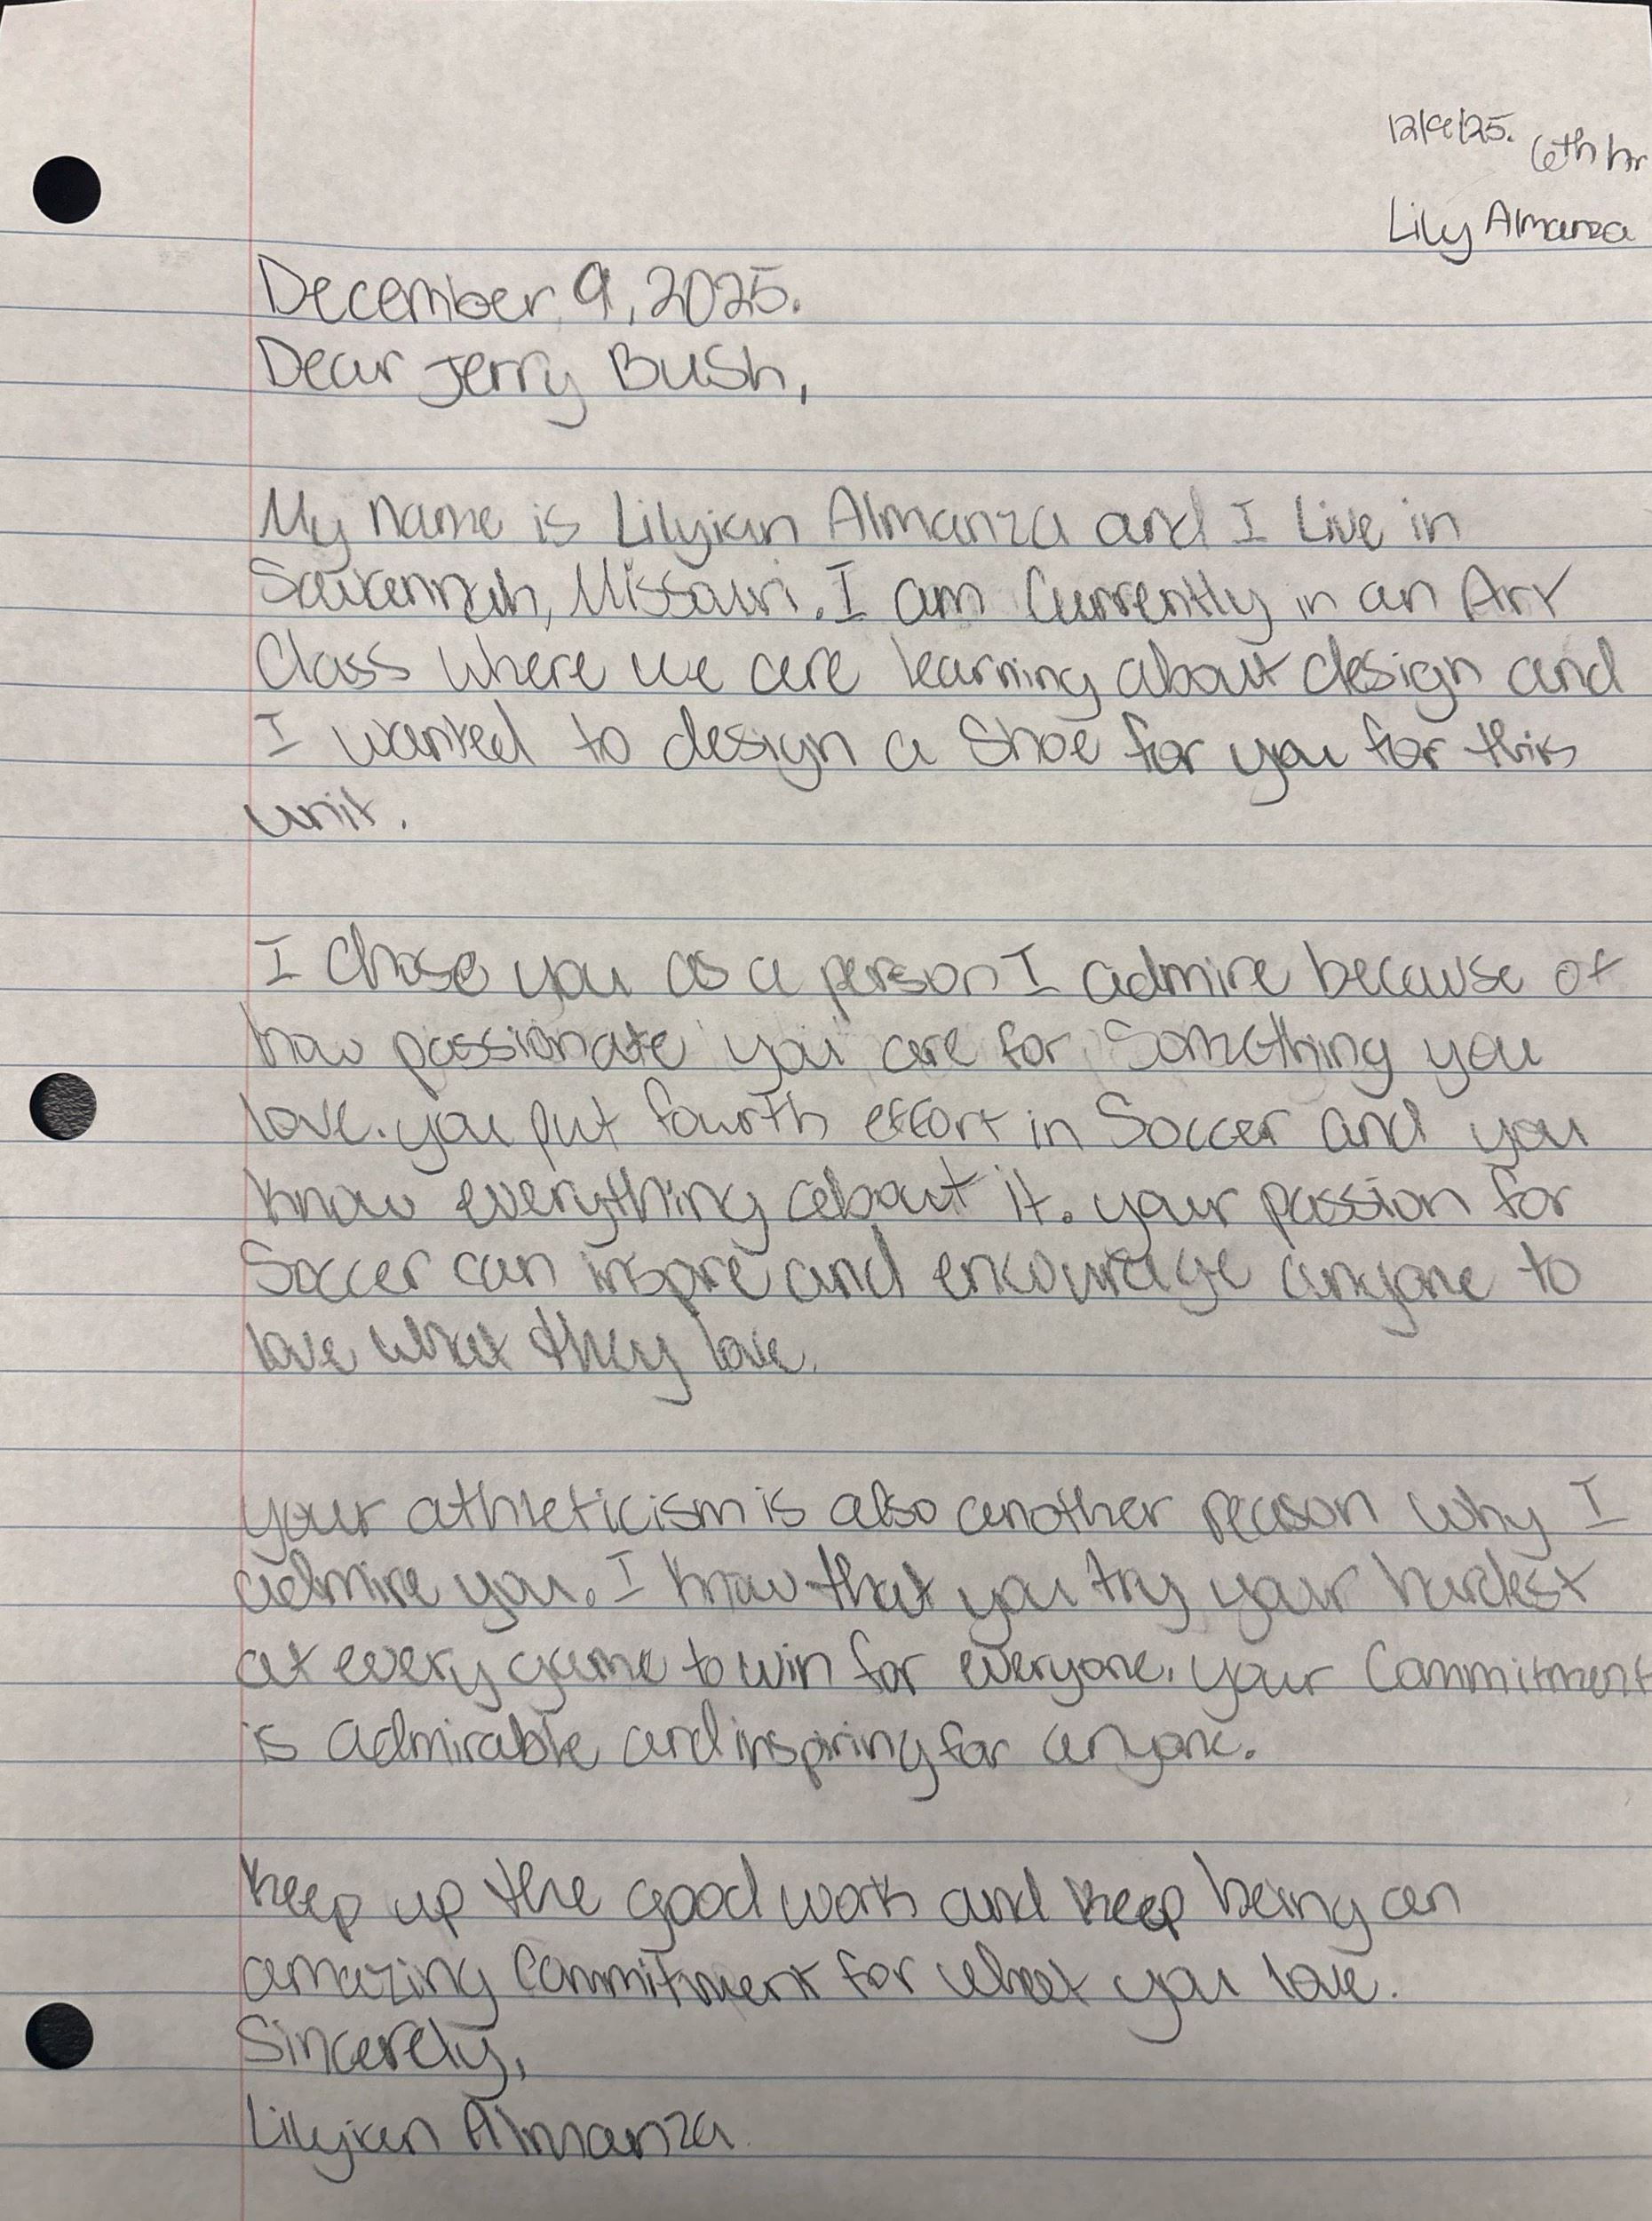 12/9/25. 6th hr
Lily Almanza
December 9, 2025.
Dear Jerry Bush,
My name is Lilyian Almanza and I Live in
Savannah, Missouri. I am Currently in an Art
Class where we are learning about design and
I wanted to design a Shoe for you for this
unit.
I Chose you as a person I admire because of
how passionate you are for Something you
love. you put fourth effort in Soccer and you
know everything about it. your passion for
Soccer can inspire and encourage anyone to
love what they love.
your athleticism is also another reason why I
admire you. I know that you try your hardest
at every game to win for everyone. your Commitment
is admirable and inspiring for anyone.
keep up the good work and keep being an
amazing Commitment for what you love.
Sincerely,
Lilyian Almanza.